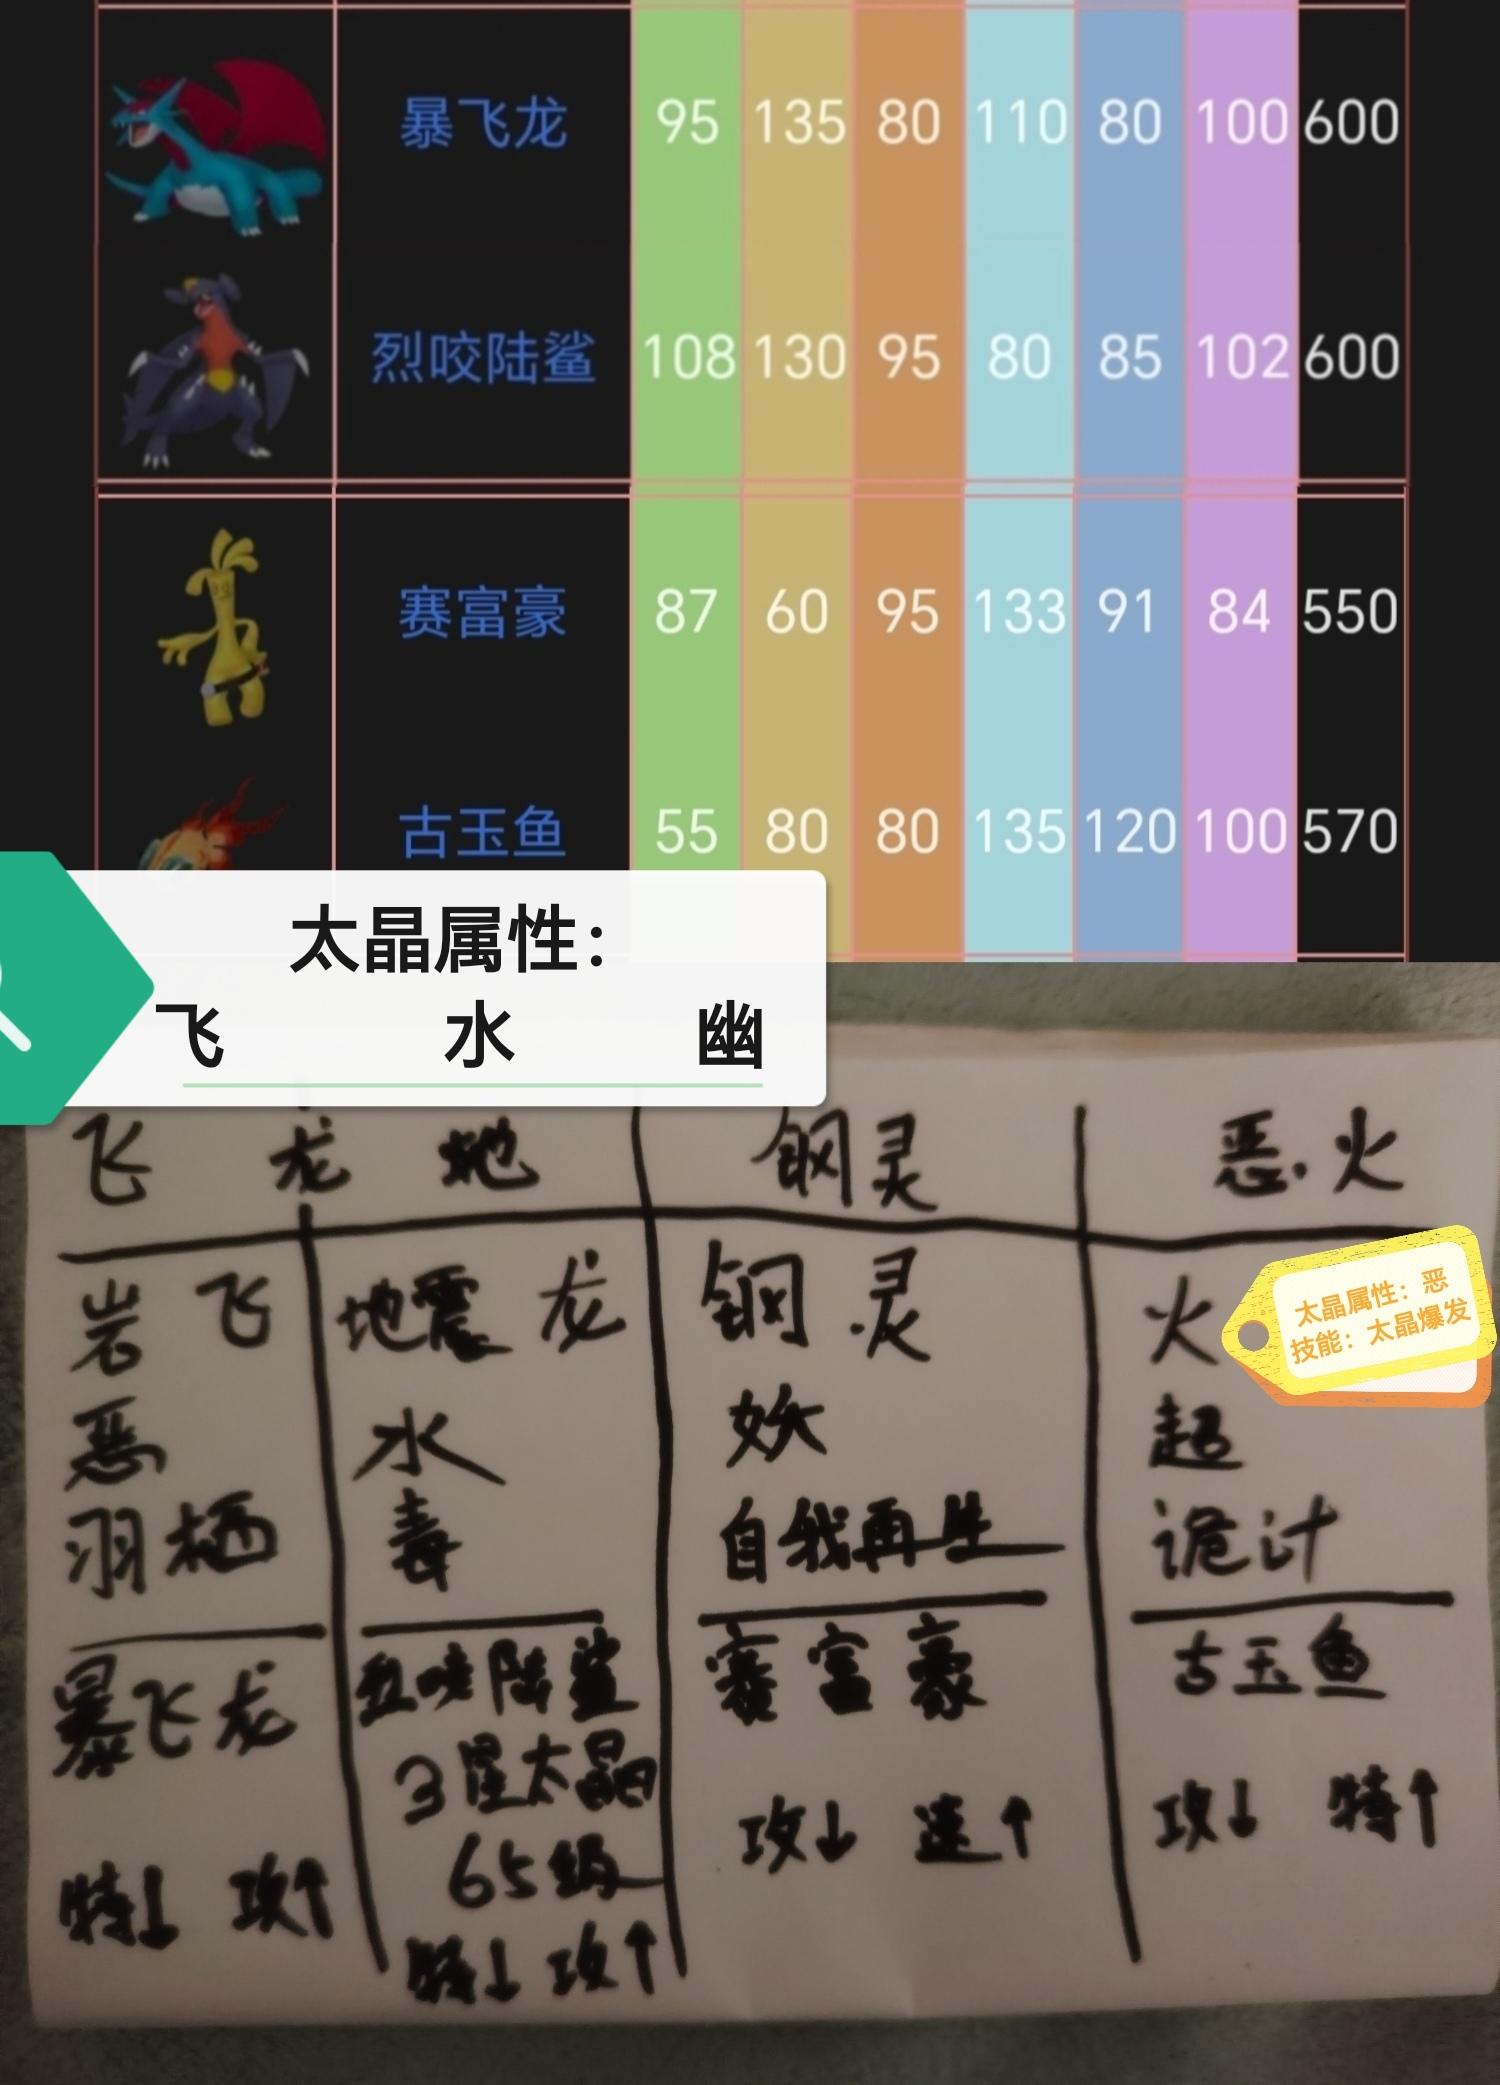 暴飞龙 95 135 80 110 80 100 600
烈咬陆鲨 108 130 95 80 85 102 600
赛富豪 87 60 95 133 91 84 550
古玉鱼 55 80 80 135 120 100 570
太晶属性：
飞 水 幽
飞 龙 地 钢灵 恶.火
岩 飞 地震 龙 钢 灵 火
太晶属性：恶
技能：太晶爆发
恶 水 妖 超
羽栖 毒 自我再生 诡计
暴飞龙 烈咬陆鲨 赛富豪 古玉鱼
3星太晶
65级
特↓ 攻↑ 特↓ 攻↑ 攻↓ 速↑ 攻↓ 特↑